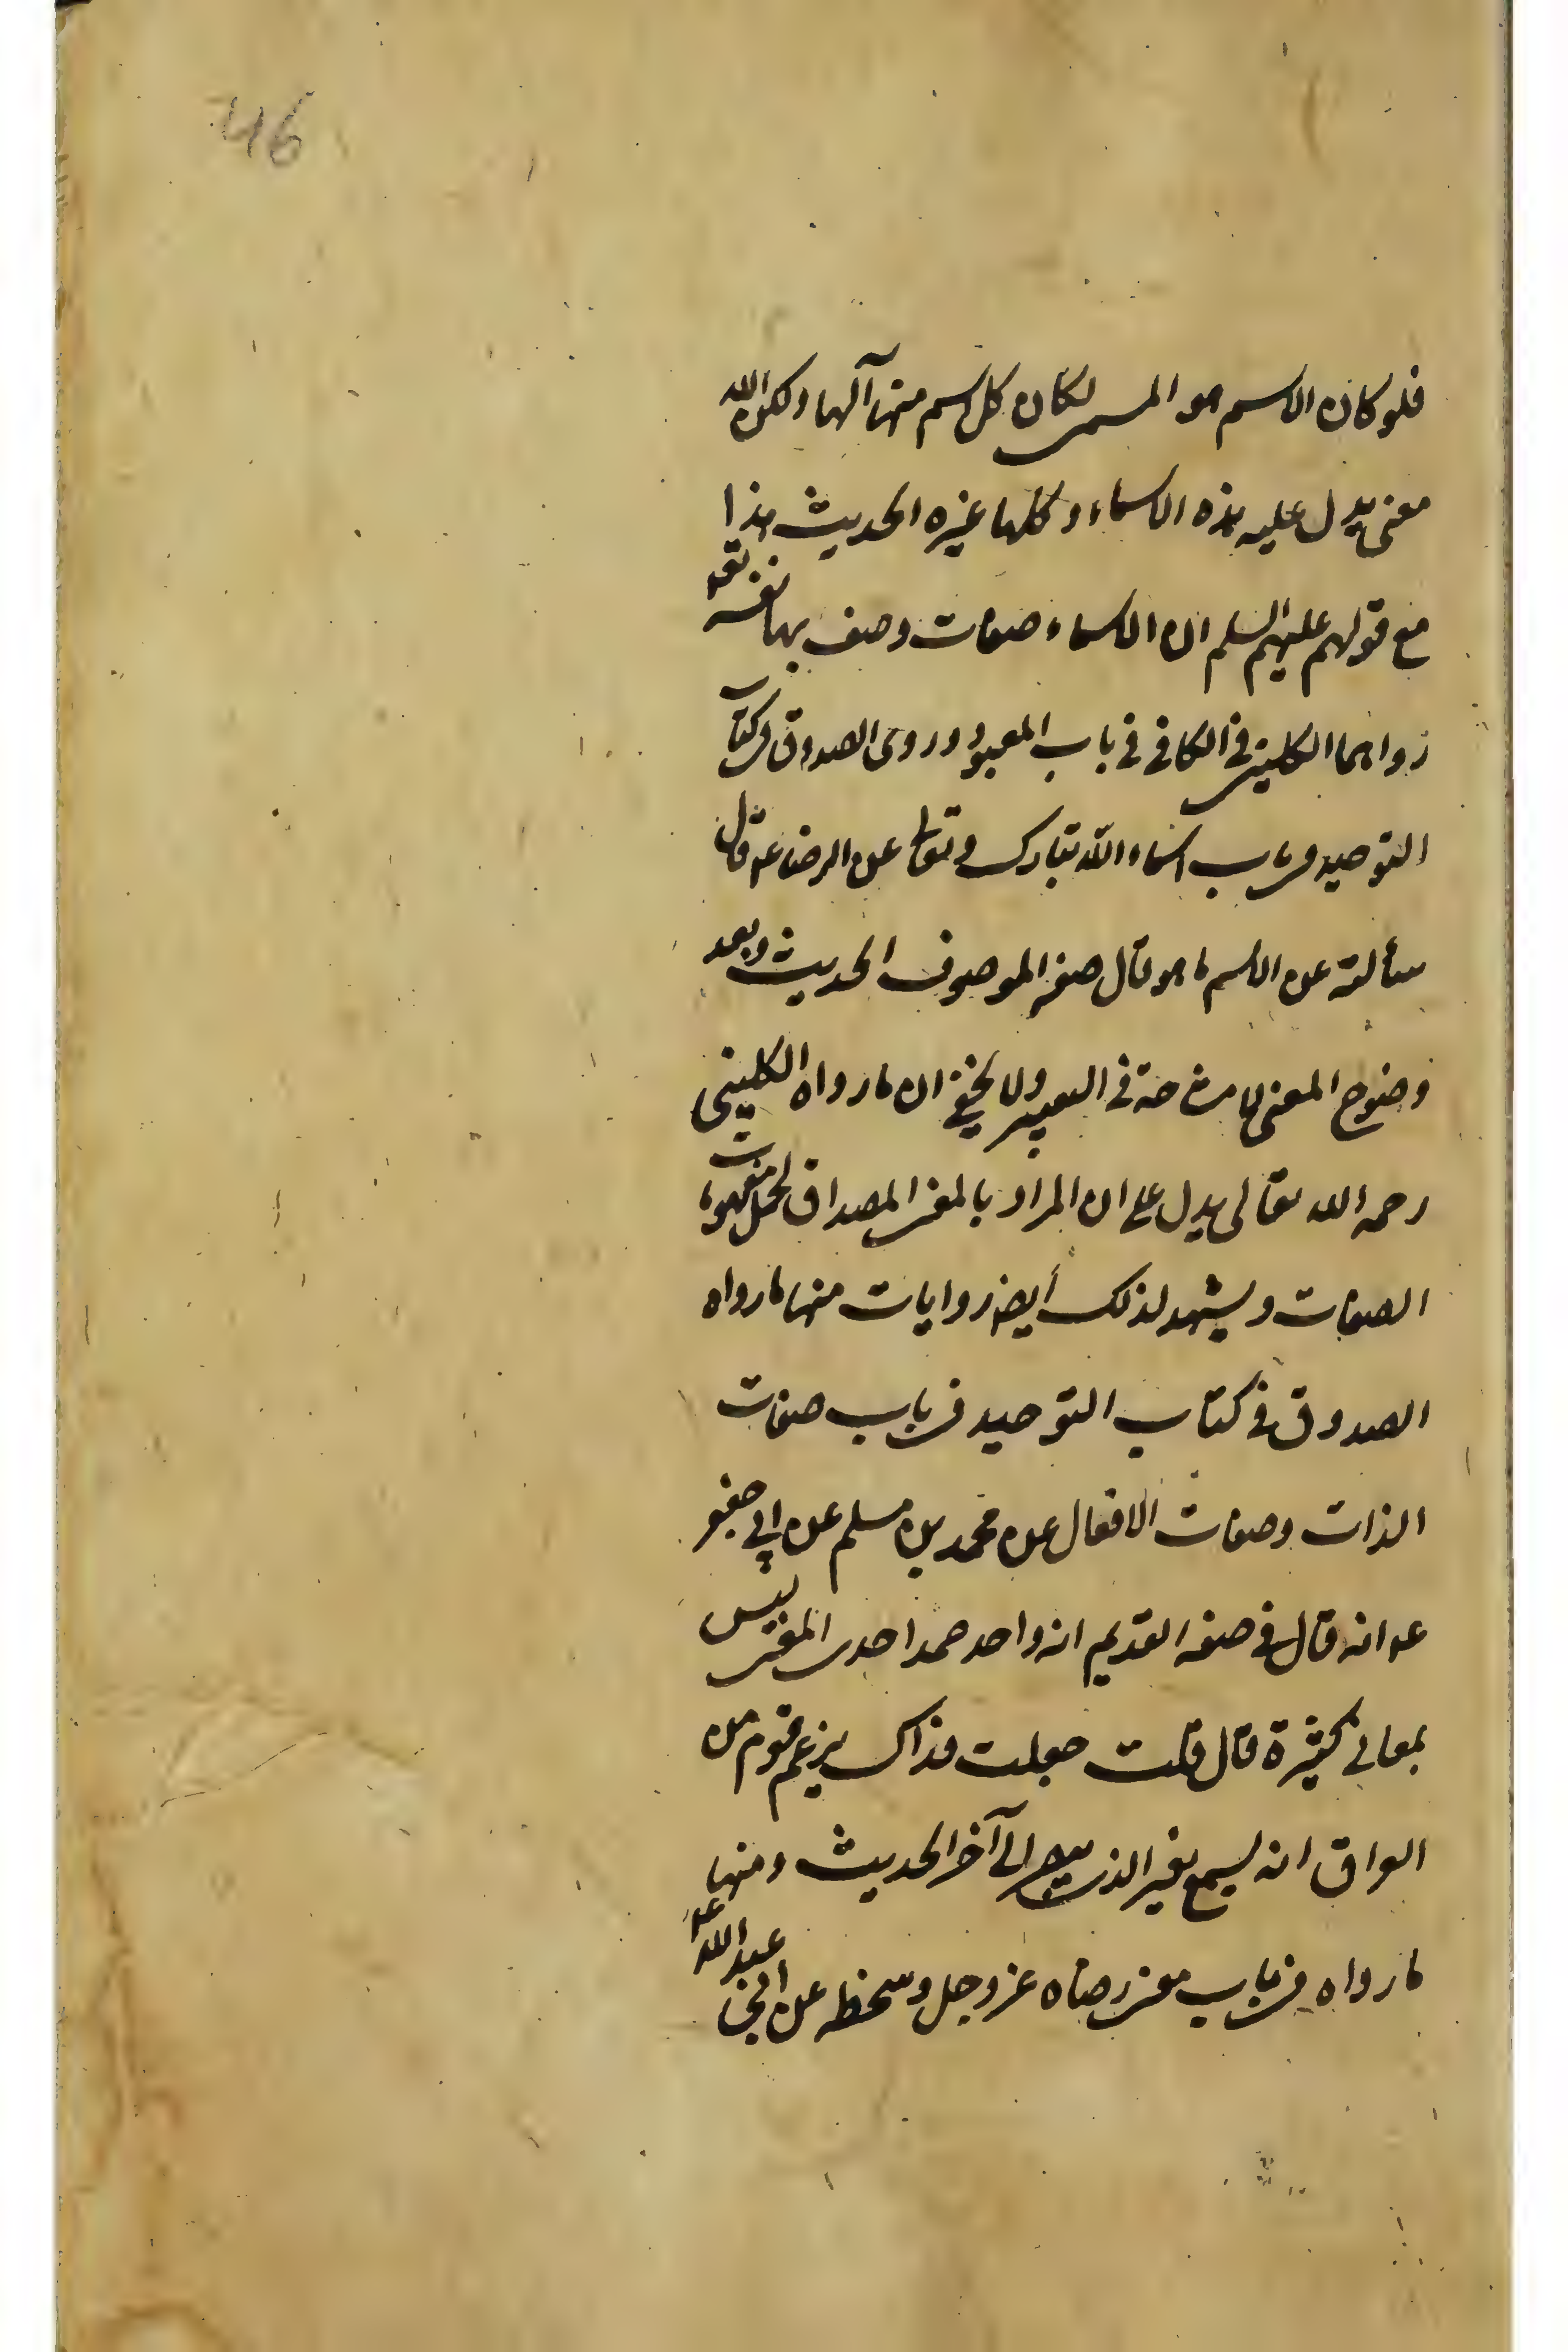 46
فلو كان الاسم هو المسمى لكان كل اسم منها آلها ولكن الله
معنى يدل عليه بهذه الاسماء وكلها غيره الحديث هذا
مع قولهم عليهم السلم ان الاسماء صفات وصف بها نفسه
رواهما الكليني في الكافي في باب المعبود وروى الصدوق في كتاب
التوحيد في باب اسماء الله تبارك وتعالى عن الرضا ع قال
سألته عن الاسم ما هو قال صفة الموصوف الحديث وبعد
وضوح المعنى لا مشاحة في التعبير ولا يخفى ان ما رواه الكليني
رحمه الله تعالى يدل على ان المراد بالمعنى المصداق لحمل مفهومات
الصفات ويشهد لذلك أيضا روايات منها ما رواه
الصدوق في كتاب التوحيد في باب صفات
الذات وصفات الافعال عن محمد بن مسلم عن ابي جعفر
ع انه قال في صفة القديم انه واحد صمد احدى المعنى ليس
بمعاني كثيرة قال قلت جعلت فداك يزعم قوم من
العراق انه يسمع بغير الذي يبصر الى آخر الحديث ومنها
ما رواه في باب معنى رضاه عز وجل وسخطه عن ابي عبد الله ع